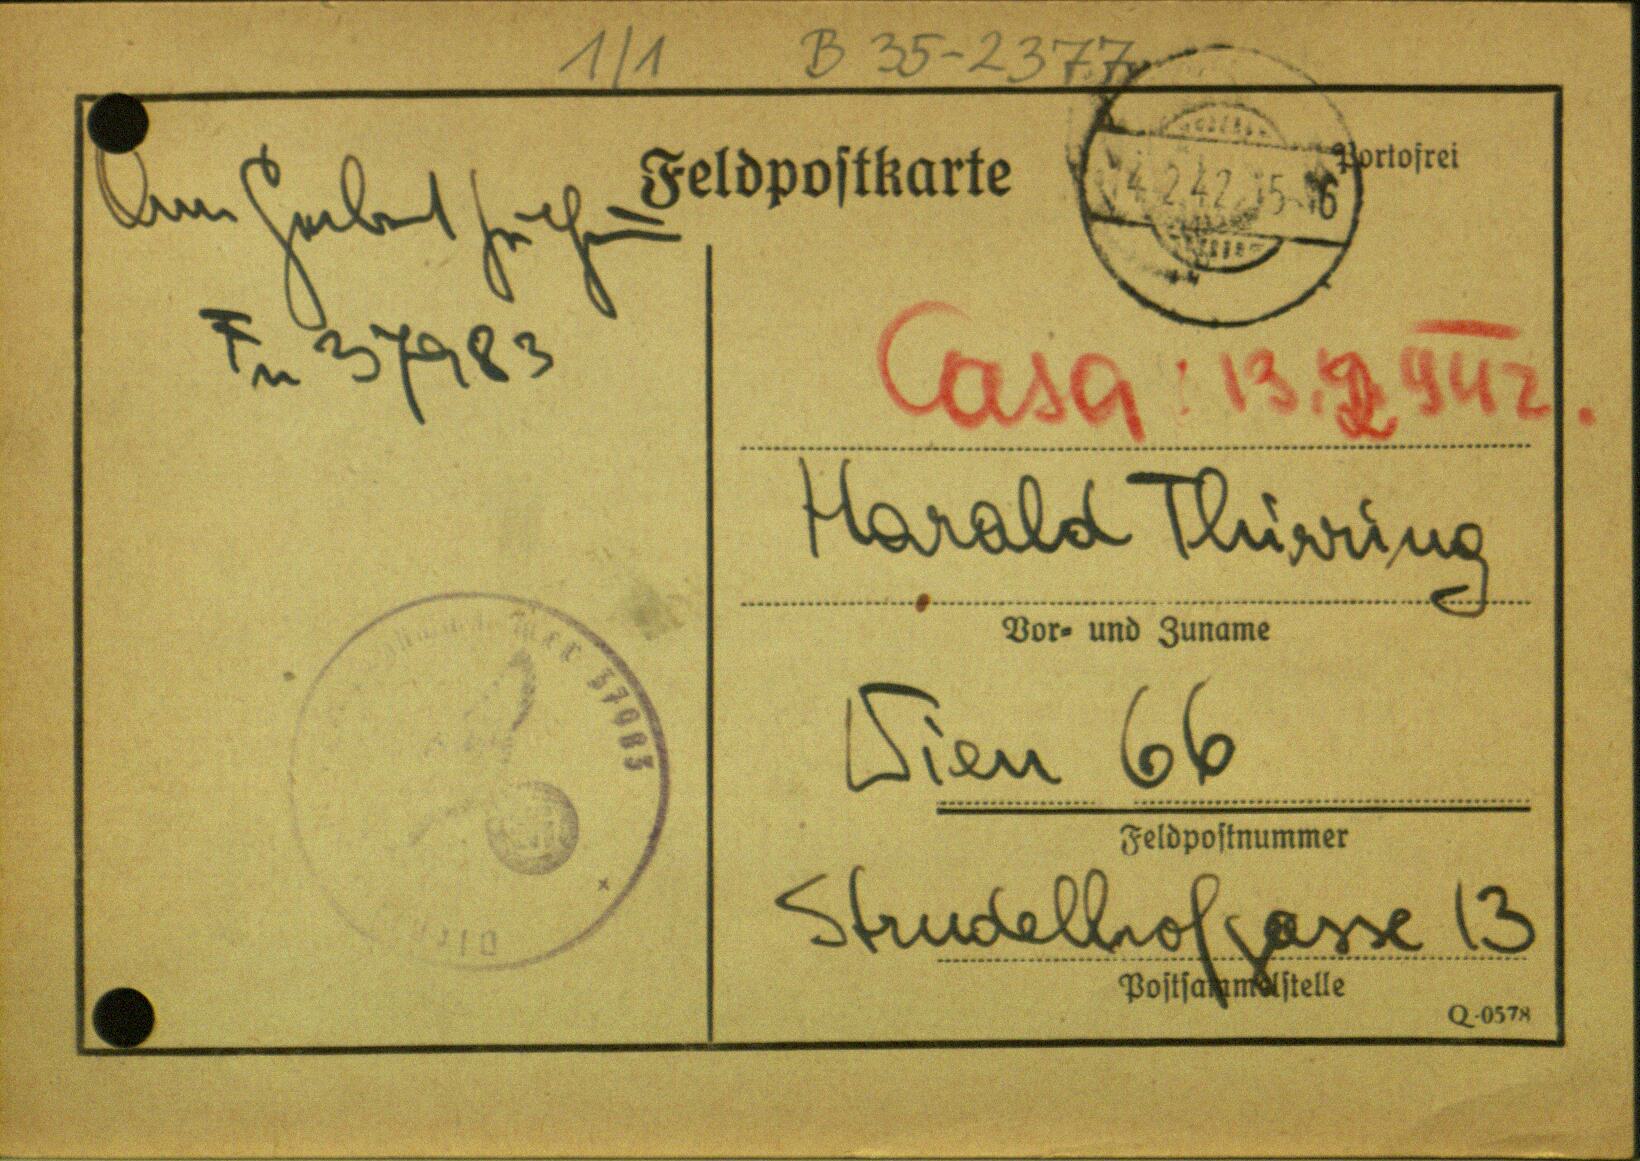 1/1 B 35-2377
Feldpostkarte
Portofrei
4.2.42 15-16
Fn 37983
Casa: 13.2.942.
Harald Thirring
Vor- und Zuname
Wien 66
Feldpostnummer
Strudelhofgasse 13
Postsammelstelle
Q-0578
37983